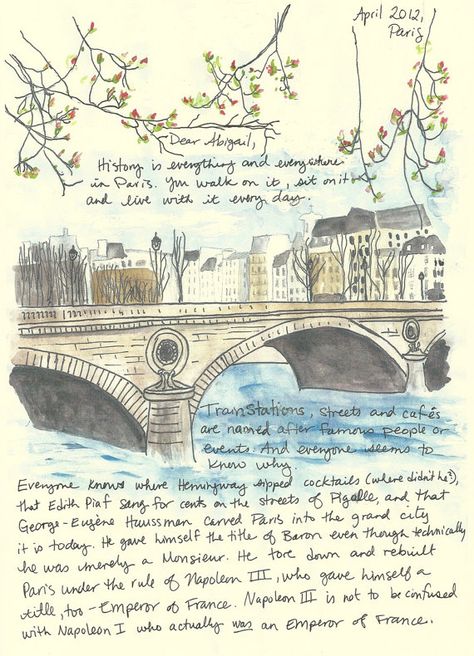 April 2012,
Paris
Dear Abigail,
History is everything and everywhere
in Paris. You walk on it, sit on it
and live with it every day.
Train Stations, streets and cafés
are named after famous people or
events. And everyone seems to
know why.
Everyone knows where Hemingway sipped cocktails (where didn't he?),
that Edith Piaf sang for cents on the streets of Pigalle, and that
George-Eugène Haussman carved Paris into the grand city
it is today. He gave himself the title of Baron even though technically
he was merely a Monsieur. He tore down and rebuilt
Paris under the rule of Napoleon III, who gave himself a
title, too - Emperor of France. Napoleon III is not to be confused
with Napoleon I who actually was an Emperor of France.